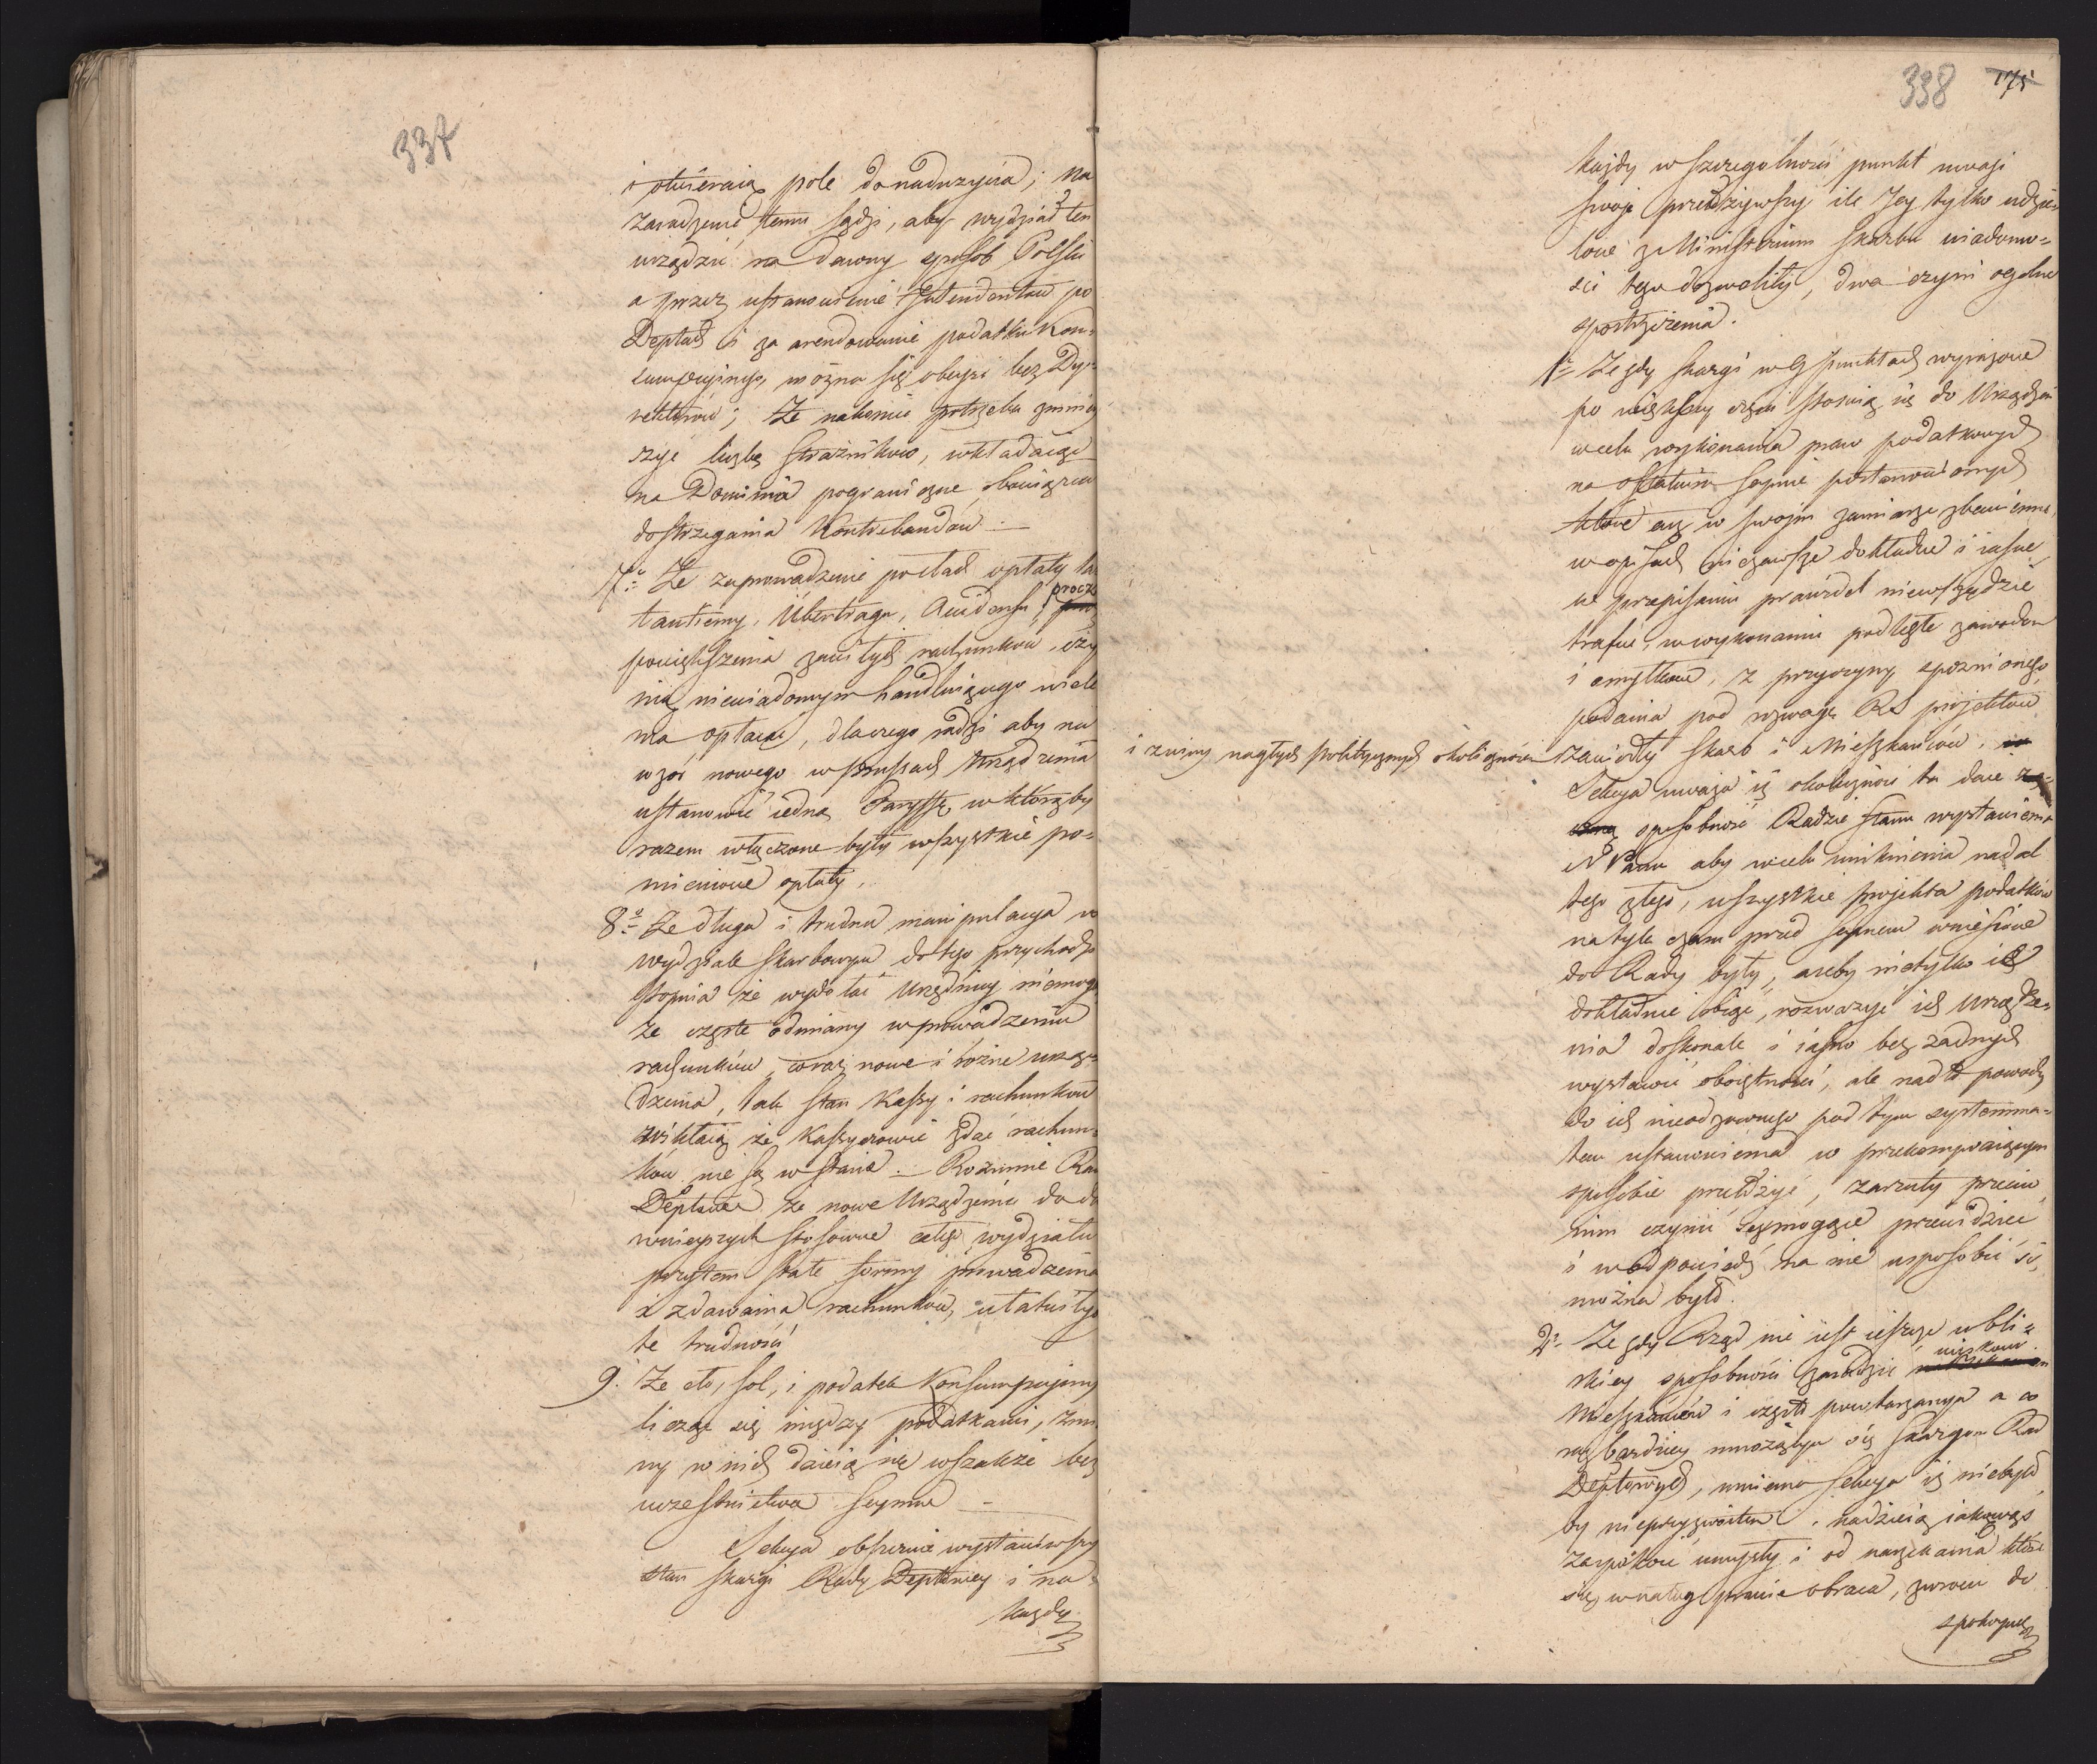 337
i otwieraią pole do nadużycia; na
zaradzenie temu sądzi, aby wydział ten
urządzić na dawny sposób Polski
a przez ustanowienie Intendentów po
Deptach i za arendowanie podatku Kon-
sumpcyjnego, można się obeyść bez Dy-
rektorów; Że nakoniec potrzeba zmniey
szyć liczbę Strażników, wkładaiąc
na Dominia pograniczne obowiązek
dostrzegania Kontrebandów. —
7o Że zaprowadzenie po cłach opłaty
tantiemy, Übertragu, Accidensu, procz
powiększenia zawiłych rachunków, czy
nią niewiadomym handluiącego wiele
ma opłacać, dlaczego radzi aby na
wzór nowego w Prusach Urządzenia
ustanowić iedną Taryffę, w którąby
razem włączone były wszystkie po-
mienione opłaty.
8o Że długa i trudna manipulacya w
wydziale skarbowym do tego przychodzi
stopnia że wydołać Urzędnicy niemogą
że częste odmiany w prowadzeniu
rachunków, coraz nowe i różne urzą-
dzenia, tak stan Kassy i rachunków
wikłaią że Kassyerowie zdać rachun-
ków nie są w stanie. — Rozumie Rada
Deptowa że nowe Urządzenie do do
wnieyszych stosowne całego wydziału
przytem stałe formy prowadzenia
i zdawania rachunków, ułatwiłyby
te trudności
9. Że cło, sól, i podatek Konsumpcyiny
licząc się między podatkami, zmia
ny w nich dzieią się wszakże bez
uczestnictwa Seymu —
Sekcya obszernie wystawiwszy
stan skargi Rady Deptowey i na
każdy
338 175
każdy w szczególności punkt uwagi
swoje przełożywszy ile Jey tylko udzie-
lone z Ministerium Skarbu wiadomo-
ści tego dozwoliły, dwa czyni ogólne
spostrzeżenia.
1o Że gdy skargi w 9 punktach wyrażone
po większey części stosuią się do Urządzeń
w celu wykonania praw podatkowych
na ostatnim Seymie postanowionych
które acz w swoim zamiarze zbawienne,
w opisach nie zawsze dokładne i iasne,
w przepisaniu prawideł niewszędzie
trafne, w wykonaniu podległe zawodom
i omyłkom, z przyczyny spóźnionego
podania pod rozwagę RS projektów
i zmiany nagłych politycznych okoliczności
zawiodły Skarb i Mieszkańców.
Sekcya uważa iż okoliczność ta daie
sposobność Radzie Stanu wystawienia
N Panu aby w celu uniknienia nadal
tego złego, wszystkie projekta podatków
na tyle czasu przed Seymem wniesione
do Rady były, ażeby nietylko ich
dokładnie obiąć, rozważyć ich urządze-
nia doskonale i iasno bez żadnych
wystawić obojętności, ale nadto powody
do ich nieodzownego pod tym systemma-
tem ustanowienia w przekonywaiącym
sposobie przełożyć, zarzuty przeciw
nim czynić się mogące przewidzieć
i w odpowiedź na nie usposobić się
można było.
2o Że gdy Rząd nie iest ieszcze w bli-
skiey sposobności zaradzić uciskowi
Mieszkańców i często powtarzanym a co
raz bardziey mnożącym się skargom Rad
Deptowych, mniema Sekcya iż niebyło
by nieprzyzwoitem, nadzieią iakowąś
zaspokoić umysły i od narzekania które
się w nałóg prawie obraca, zwrócić do
spokoyney